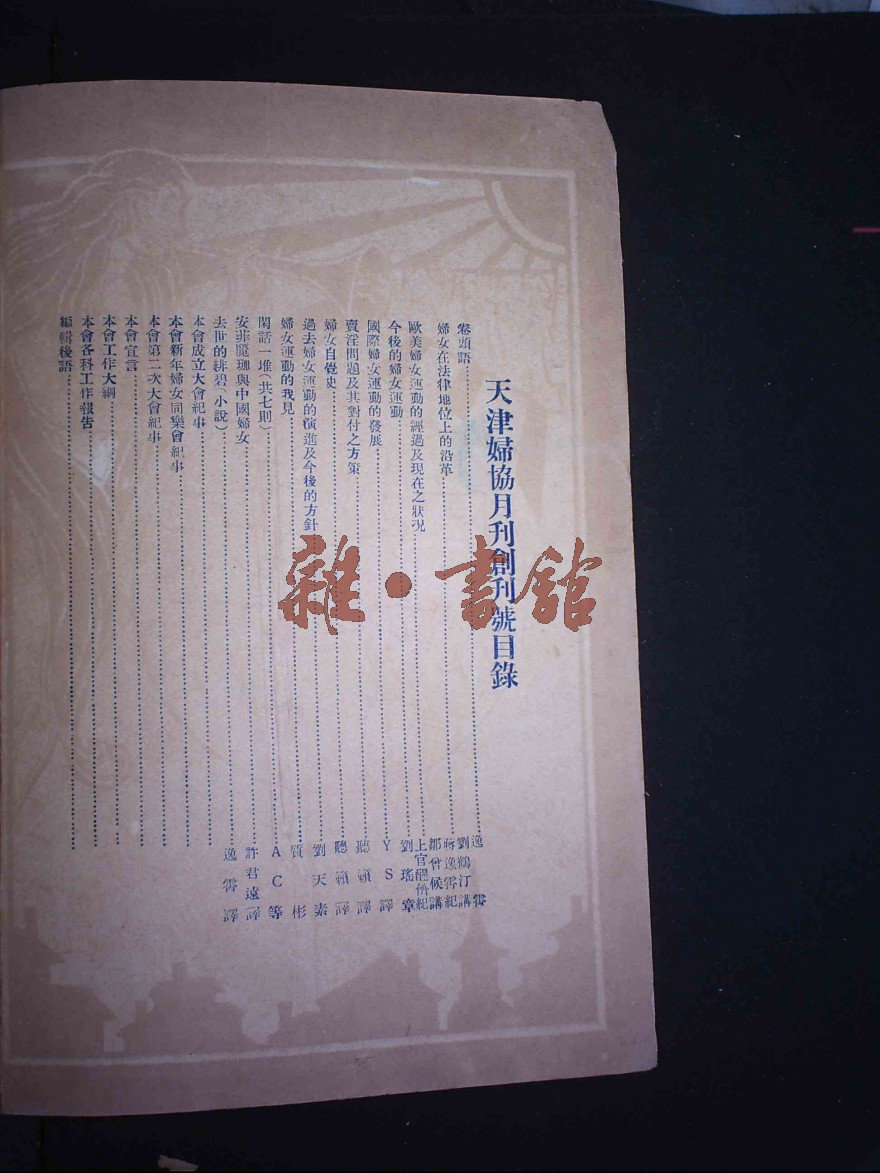 天津婦協月刊創刊號目錄
卷頭語 逸霄
婦女在法律地位上的沿革 劉鶴汀講 蔣逸霄紀
歐美婦女運動的經過及現在之狀況 鄒曾候講 上官醒儕紀
今後的婦女運動 劉瑤章
國際婦女運動的發展 YS譯
賣淫問題及其對付之方策 聽籟譯
婦女自覺史 聽籟譯
過去婦女運動的演進及今後的方針 劉天素
婦女運動的我見 質彬
閑話一堆(共七則) AC等
安菲魔珈與中國婦女 許君遠譯
去世的緋碧(小說) 逸霄譯
本會成立大會紀事
本會新年婦女同樂會紀事
本會第二次大會紀事
本會宣言
本會工作大綱
本會各科工作報告
編輯後語
雜·書館